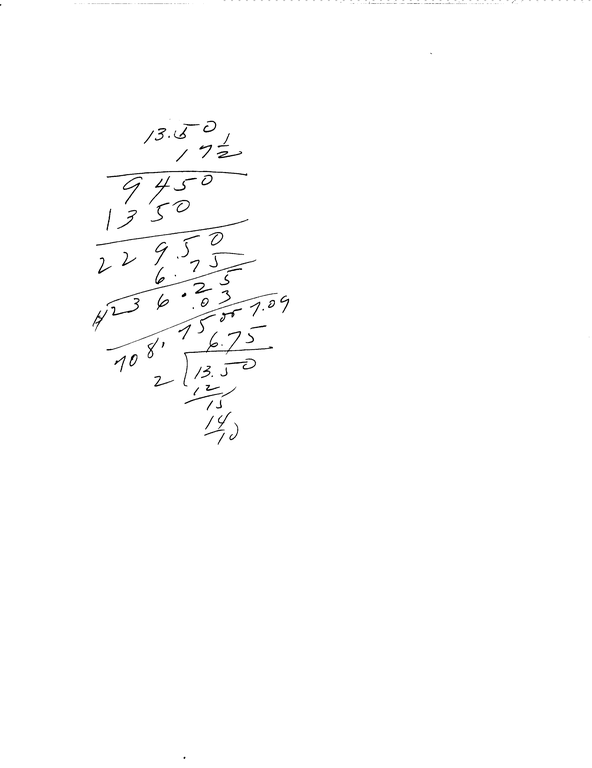 13.50
17 1/2
9450
1350
229.50
6.75
#236.25
.03
708.75 or 7.09
6.75
2 13.50
12
15
14
10